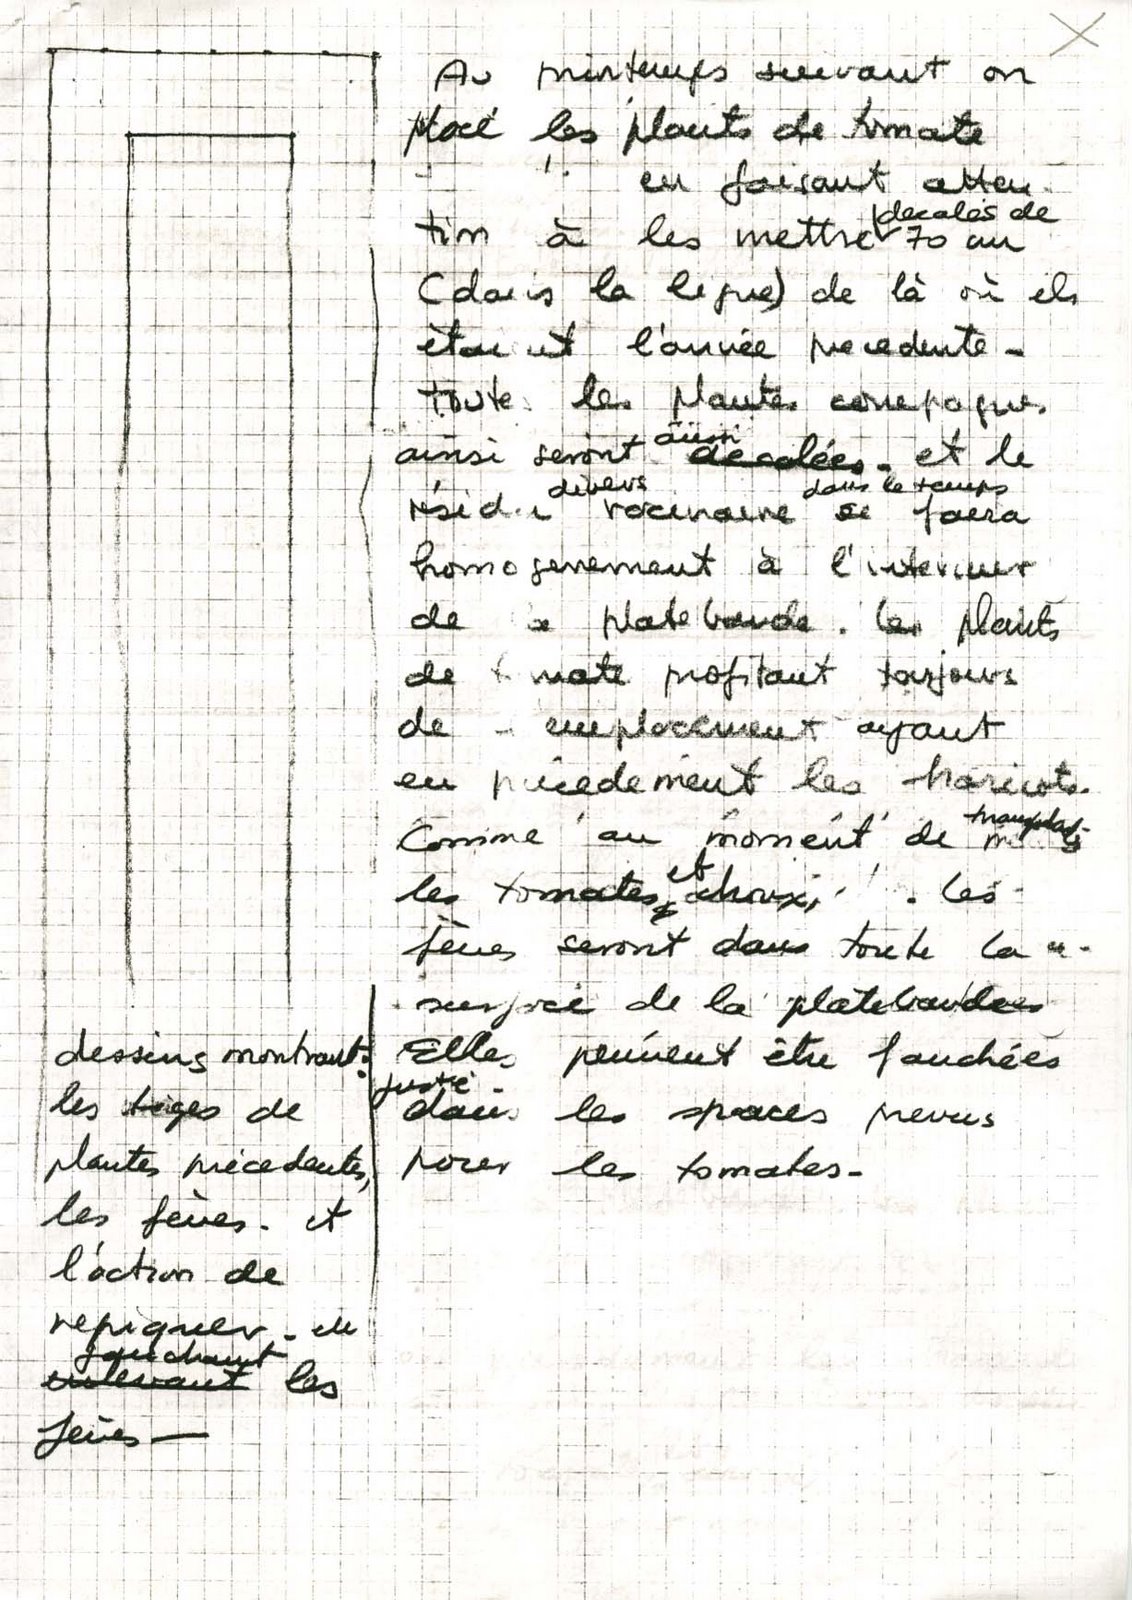 Au printemps suivant on
place les plants de tomate
en faisant atten-
tion à les mettre decalés de 70 cm
(dans la ligne) de là où ils
étaient l'année precedente -
toute les plantes compagnes
ainsi seront aussi decalées. et le
résidu divers racinaire dans le temps se faera
homogenement à l'interieur
de la platebande. les plants
de tomate profitant toujours
de emplacement ayant
eu précedement les haricots.
Comme au moment de
les tomates et choux, les
fèves seront dans toute la
surface de la platebandes
Elles peuvent être fauchées
juste dans les spaces prevus
pour les tomates -
dessins montrant:
les tiges de
plantes précedentes,
les fèves - et
l'action de
repiquer - en
fauchant les
fèves —